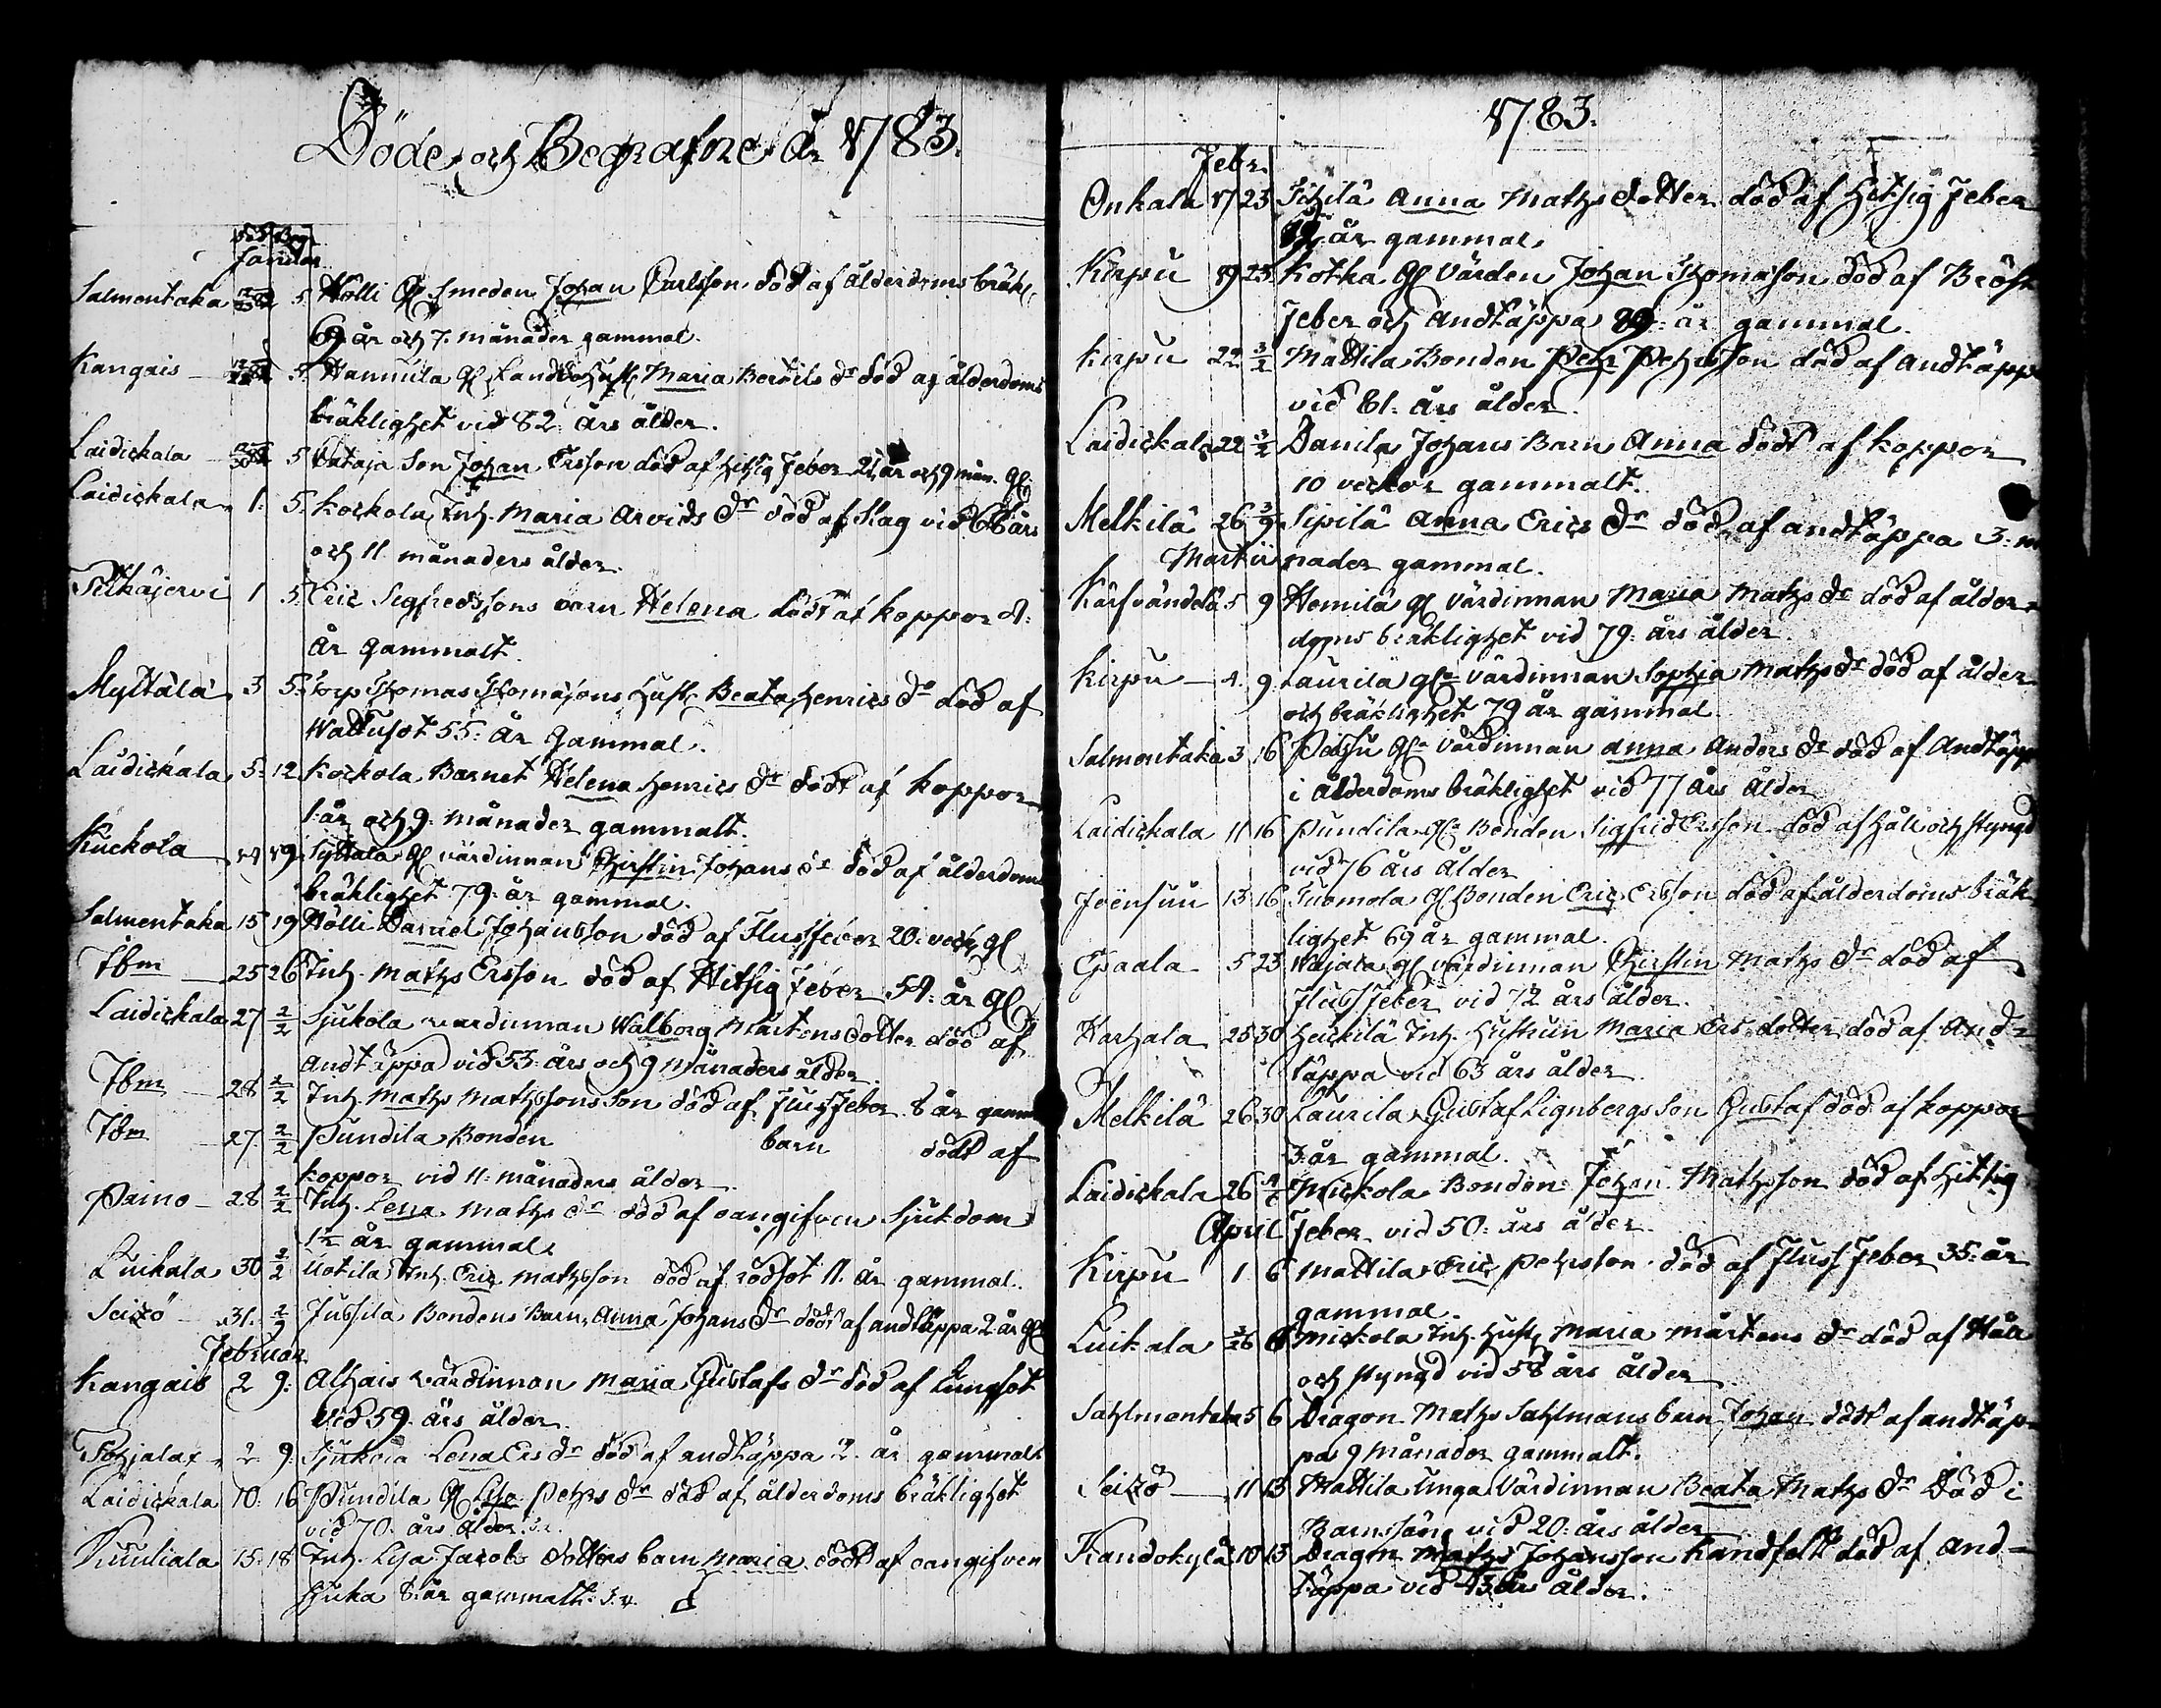 Döde och Begrafne År 1783.
död Begr
Januar
Salmentaka 5. Hölli Gl Smeden Johan Carlsson död af ålderdoms bräkl.
69 år och 7. månader gammal.
Kangais 5. Hannula Gl Maria Bertils dr död af ålderdoms
bräklighet vid 82 års ålder.
Laidickala 5 Wataja Son Johan Ersson död af hitsig feber 21 år och 9 mån. gl.
Laidickala 1. 5. Kockola Inh. Maria Arvids dr död af Slag vid 66 års
och 11 månaders ålder.
1 5. Eric Segfredssons barn Helena dödt af koppor 4.
år gammalt.
Myttälä 3 5. Torp Thomas Thomasons hust. Beata Henrics dr död af
Wattusot 55. år gammal.
Laidickala 5. 12 Kockola Barnet Helena Henrics dr dödt af koppor
1. år och 9. månader gammalt.
Kuckola 14 19. Gl värdinnan Christin Johans dr död af ålderdoms
bräklighet 79. år gammal.
Salmentaka 15 19 Hölli Daniel Johansson död af Flussfeber 20. veck. gl
Ibm 25 26 Inh. Maths Ersson död af Hitsig feber 54. år gl
Laidickala 27 2/2 Sjukola wärdinnan Walborg Mårtensdotter död af
Andtäppa vid 53. års och 9 månaders ålder.
Ibm 28 2/2 Inh. Maths Mathssons Son död af flussfeber 8 år gamm
Ibm 27. 2/2 Pundila Bonden barn dödt af
koppor vid 11. månaders ålder.
Paino 28 2/2 Inh. Lena Maths dr död af oangifven Sjukdom
1½ år gammal.
Luikala 30 2/2 Uotila Inh. Eric Mathsson död af rödsot 11. år gammal.
31. Jussila Bondens Barn Anna Johans dr dödt af andtäppa 2 år gl
Februar.
Kangais 2 9. Alhais wärdinnan Maria Gustafs dr död af Lungsot
vid 59. års ålder.
Pohjala 2 9. Lena Ers dr död af andtäppa 2. år gammalt
Laidickala 10. 16 Pundila Gl Lisa Pehrs dr död af ålderdoms bräklighet
vid 70. års ålder.
Kuuliala 15. 18 Inh. Lisa Jacobs dotters barn Maria dödt af oangifven
sjuka 8. år gammalt.
1783.
Febr.
Onkala 17 23 Pihilä Anna Maths dotter död af hitsig feber
år gammal.
Kirpu 19 23 Kotka Gl Värden Johan Thomasson död af Bröst
feber och Andtäppa 89. år gammal.
Kirpu 22 3/2 Mattila Bonden Pehr Pehrsson död af andtäppa
vid 81. års ålder.
Laidickala 22 3/2 Danila Johans Barn Anna dödt af koppor
10 veckor gammalt.
Melkilä 26 3/9 Sipilä Anna Erics dr död af andtäppa 3. m
nader gammal.
Martii
5 9 Hemilä gl värdinnan Maria Maths dr död af ålder-
doms bräklighet vid 79. års ålder.
Kirpu 4. 9. Laurila gla värdinnan Sophia Maths dr död af ålder
och bräklighet 79 år gammal.
Salmentaka 3 16 Gla värdinnan Anna Anders dr död af Andtäpp
i ålderdoms bräklighet vid 77 års ålder
Laidickala 11 16 Pundila gla Bonden Sigfrid Ersson död af håll och styngd
vid 76 års ålder
Joensuu 13 16. Tuomola Gl Bonden Eric Ersson död af ålderdoms bräk
lighet 69 år gammal.
5 23 Gl värdinnan Christin Maths dr död af
flussfeber vid 72 års ålder.
Harhala 25 30 Heickilä Inh. Hustrun Maria Ersdotter död af And-
täppa vid 63 års ålder.
Melkilä 26 30 Laurila Gustaf Lignbergs Son Gustaf död af koppor
3. år gammal.
Laidickala 26 Mickola Bonden Johan Mathsson död af hitsig
feber vid 50. års ålder.
April
Kirpu 1. 6 Mattila Eric Pehrsson död af Flussfeber 35. år
gammal.
Luikala 3/26 6 Mickola Inh. hust. Maria Mårtens dr död af Håll
och styngd vid 58 års ålder
Sahlmentaka 5 6 Dragon Maths Sahlmans barn Johan dödt af andtäp-
pa 9 månader gammalt.
11 13 Mattila Unga Värdinnan Beata Maths dr Död i
Barnsäng vid 20. års ålder
Kandokylä 10 13 Dragon Maths Johansson Kandfelt död af And-
täppa vid 43. års ålder.